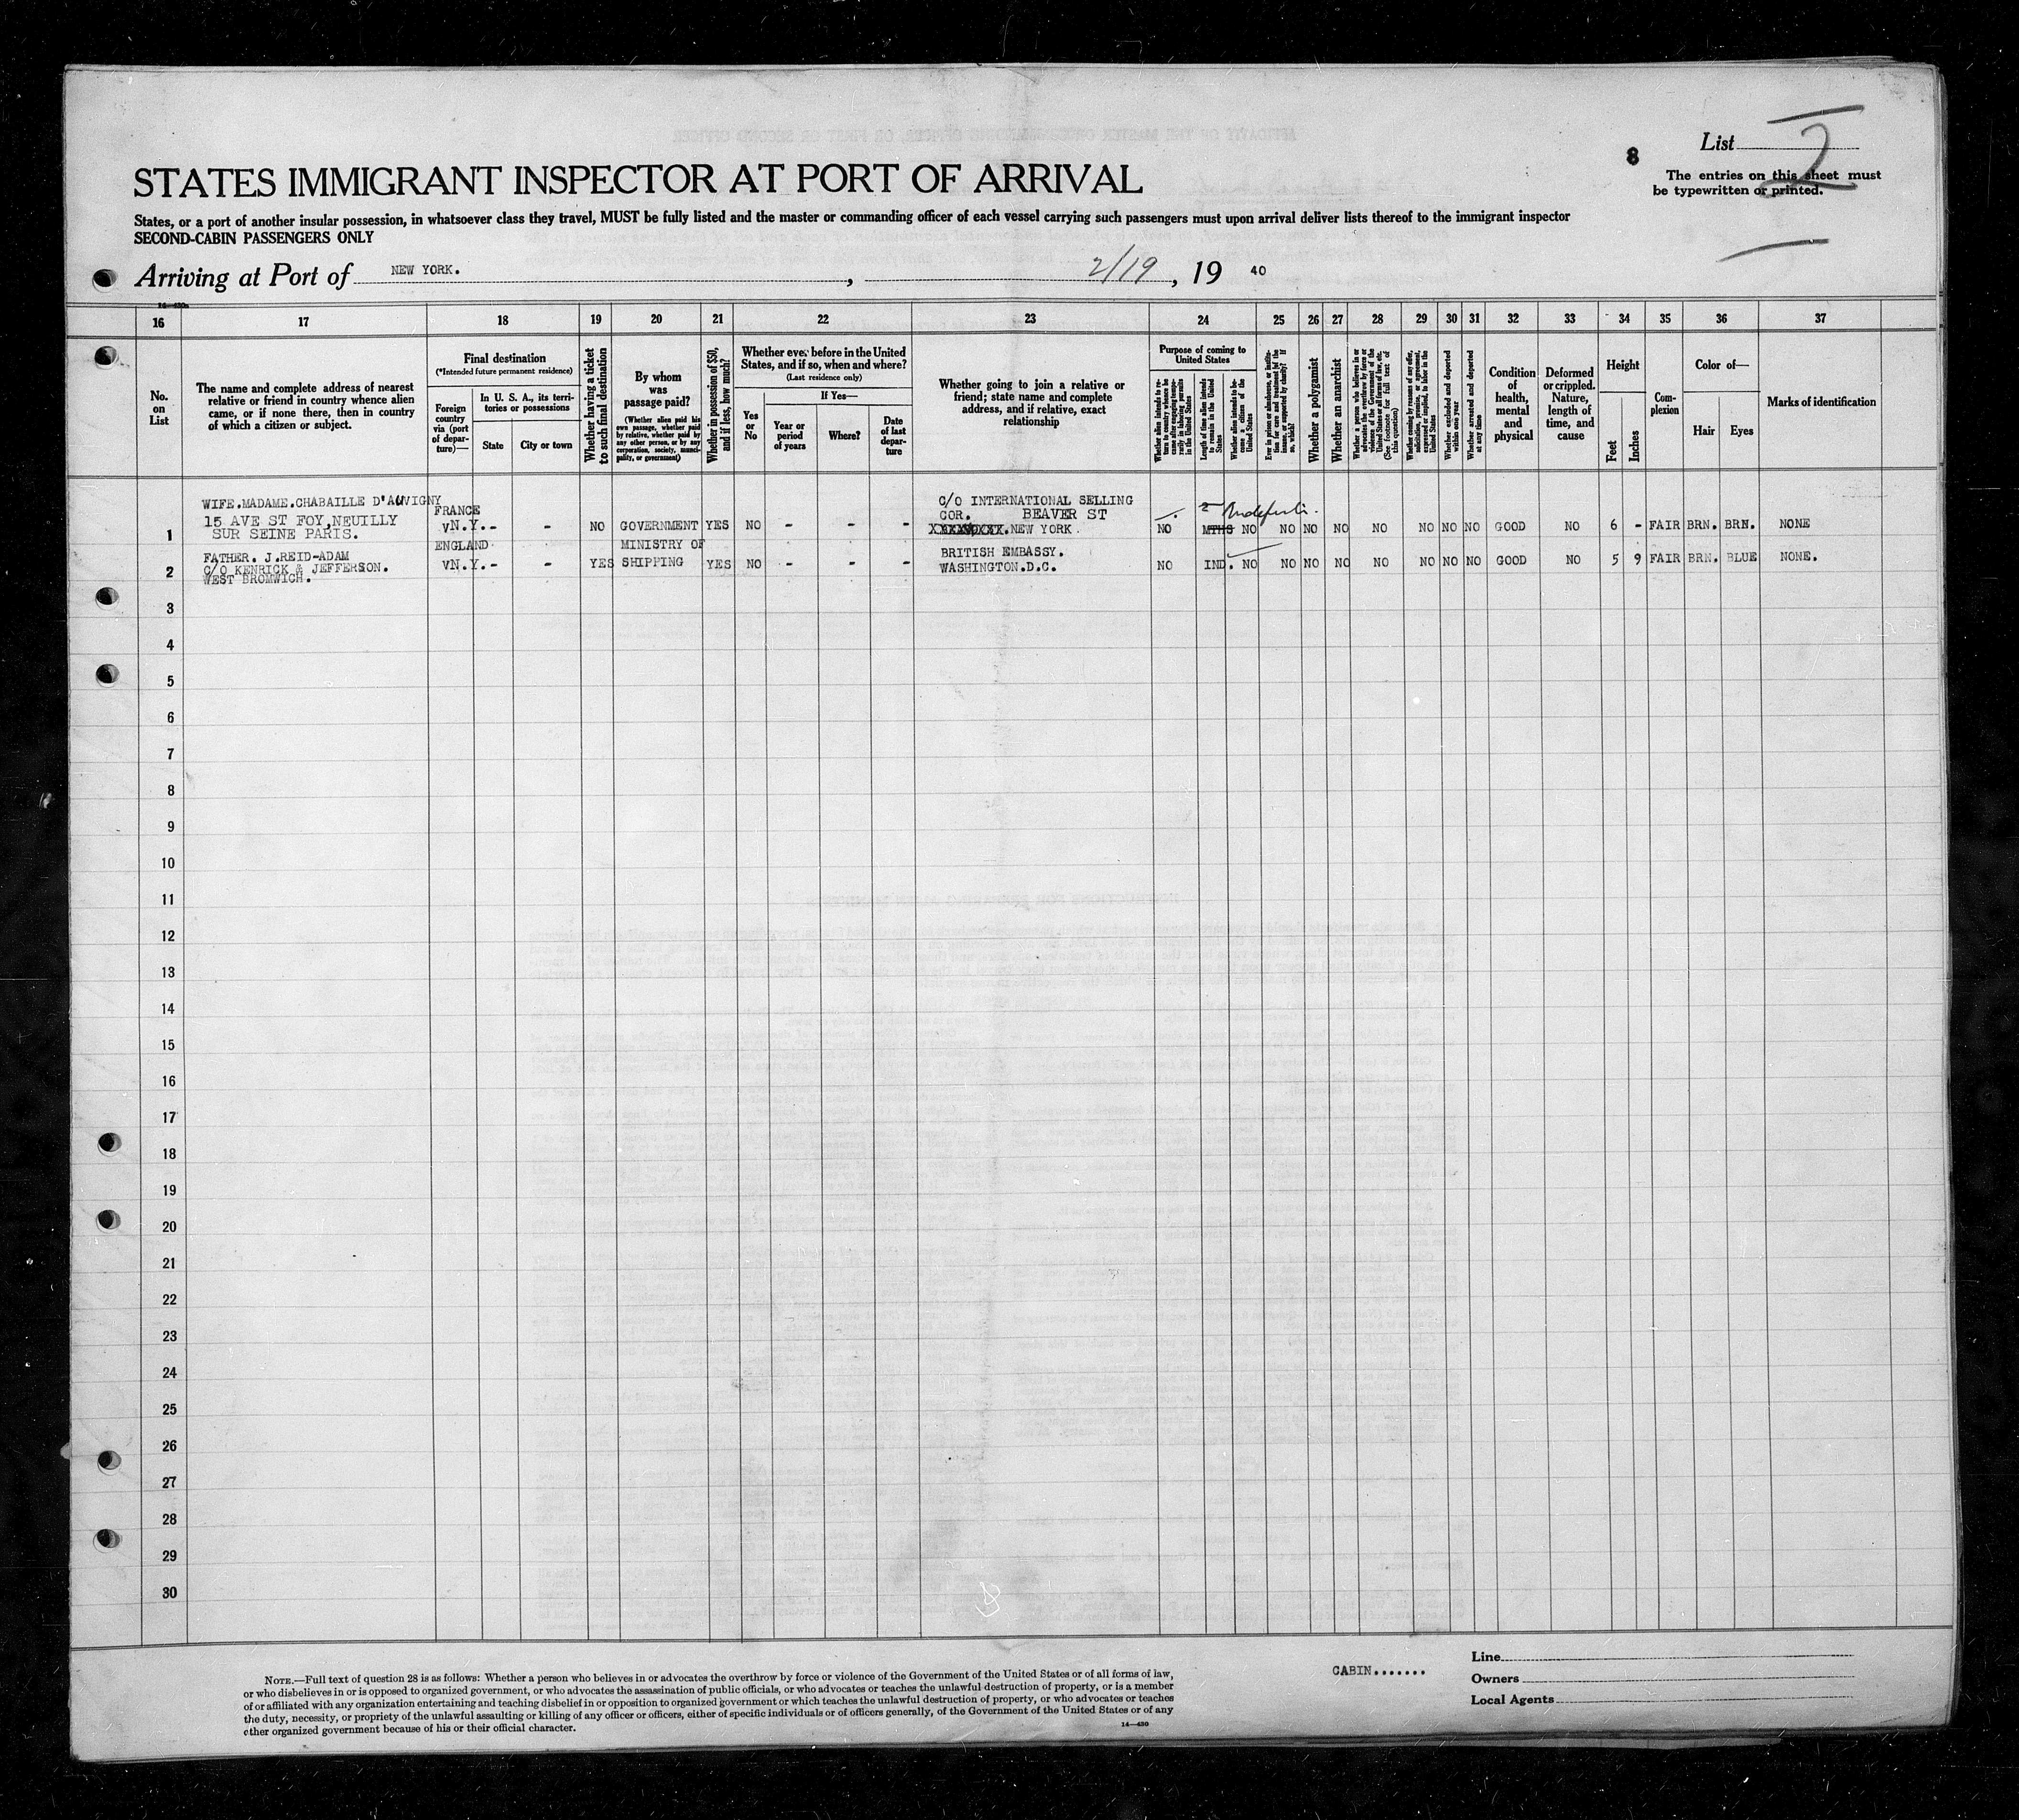 List 2
8
The entries on this sheet must
be typewritten or printed.
STATES IMMIGRANT INSPECTOR AT PORT OF ARRIVAL
States, or a port of another insular possession, in whatsoever class they travel, MUST be fully listed and the master or commanding officer of each vessel carrying such passengers must upon arrival deliver lists thereof to the immigrant inspector
SECOND-CABIN PASSENGERS ONLY
Arriving at Port of NEW YORK. , 2/19 , 19 40
16 17 18 19 20 21 22 23 24 25 26 27 28 29 30 31 32 33 34 35 36 37
No.
on
List
The name and complete address of nearest
relative or friend in country whence alien
came, or if none there, then in country
of which a citizen or subject.
Final destination
(*Intended future permanent residence)
Foreign
country
via (port
of depar-
ture)—
In U. S. A., its terri-
tories or possessions
State
City or town
Whether having a ticket
to such final destination
By whom
was
passage paid?
(Whether alien paid his
own passage, whether paid
by relative, whether paid by
any other person, or by any
corporation, society, munici-
pality, or government)
Whether in possession of $50,
and if less, how much?
Whether ever before in the United
States, and if so, when and where?
(Last residence only)
Yes
or
No
If Yes—
Year or
period
of years
Where?
Date
of last
depar-
ture
Whether going to join a relative or
friend; state name and complete
address, and if relative, exact
relationship
Purpose of coming to
United States
Whether alien intends to re-
turn to country whence he
came after engaging tempo-
rarily in laboring pursuits
in the United States
Length of time alien intends
to remain in the United
States
Whether alien intends to be-
come a citizen of the
United States
Ever in prison or almshouse, or institu-
tion for care and treatment of the
insane, or supported by charity? If
so, which?
Whether a polygamist
Whether an anarchist
Whether a person who believes in or
advocates the overthrow by force or
violence of the Government of the
United States or all forms of law, etc.
(See footnote for full text of
this question)
Whether coming by reasons of any offer,
solicitation, promise, or agreement,
expressed or implied, to labor in the
United States
Whether excluded and deported
within one year
Whether arrested and deported
at any time
Condition
of
health,
mental
and
physical
Deformed
or crippled.
Nature,
length of
time, and
cause
Height
Feet
Inches
Com-
plexion
Color of—
Hair
Eyes
Marks of identification
WIFE.MADAME.CHABAILLE D'AUVIGNY FRANCE C/O INTERNATIONAL SELLING
15 AVE ST FOY,NEUILLY COR. BEAVER ST Indefinit.
1 SUR SEINE PARIS. vN.Y.- - NO GOVERNMENT YES NO - - - NEW YORK. NO MTHS NO NO NO NO NO NO NO NO GOOD NO 6 - FAIR BRN. BRN. NONE
FATHER. J.REID-ADAM ENGLAND MINISTRY OF BRITISH EMBASSY.
2 C/O KENRICK & JEFFERSON. vN.Y.- - YES SHIPPING YES NO - - - WASHINGTON.D.C. NO IND. NO NO NO NO NO NO NO NO GOOD NO 5 9 FAIR BRN. BLUE NONE.
WEST BROMWICH.
3
4
5
6
7
8
9
10
11
12
13
14
15
16
17
18
19
20
21
22
23
24
25
26
27
28
29
30
NOTE.—Full text of question 28 is as follows: Whether a person who believes in or advocates the overthrow by force or violence of the Government of the United States or of all forms of law,
or who disbelieves in or is opposed to organized government, or who advocates the assassination of public officials, or who advocates or teaches the unlawful destruction of property, or is a member
of or affiliated with any organization entertaining and teaching disbelief in or opposition to organized government or which teaches the unlawful destruction of property, or who advocates or teaches
the duty, necessity, or propriety of the unlawful assaulting or killing of any officer or officers, either of specific individuals or of officers generally, of the Government of the United States or of any
other organized government because of his or their official character.
14—430
CABIN.......
Line
Owners
Local Agents